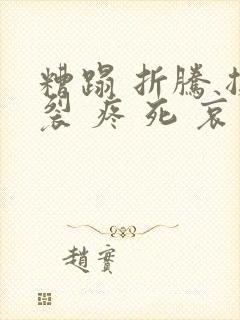 糟蹋 折騰、
裂 疼 死 哀
趙實